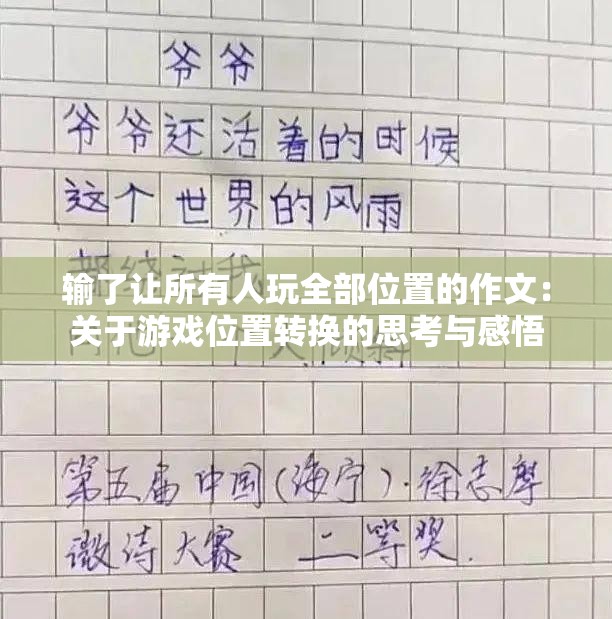 爷爷
爷爷还活着的时候
这个世界的风雨
输了让所有人玩全部位置的作文：
关于游戏位置转换的思考与感悟
第五届中国(海宁)·徐志摩
微诗大赛 二等奖.